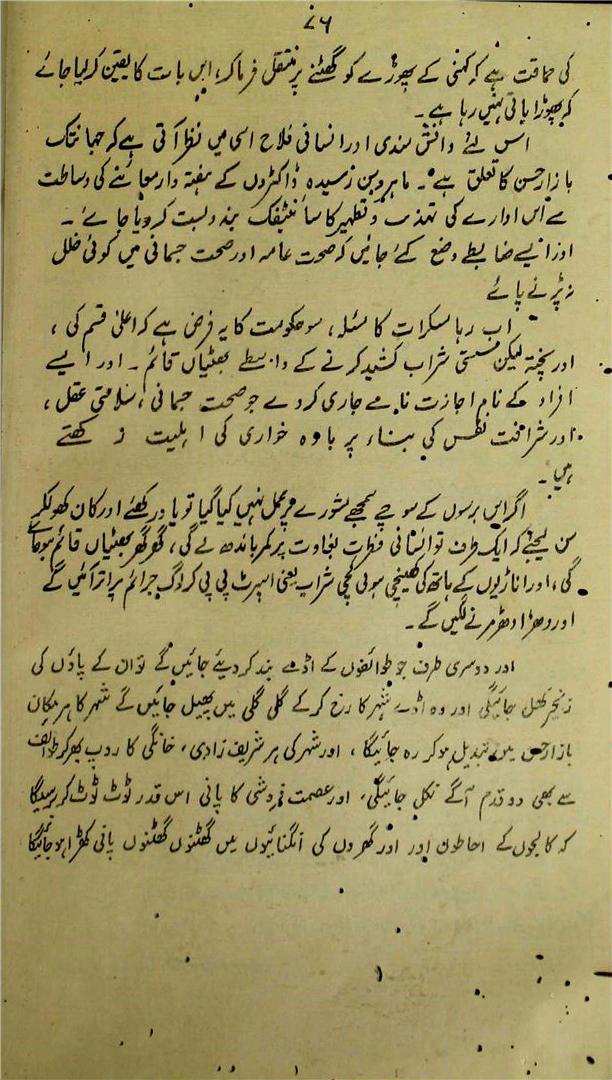 ۷۶
کی حماقت ہے کہ کہنی کے پھوڑے کو گھٹنے پر منتقل فرما کر، اس بات کا یقین کر لیا جائے
کہ پھوڑا باقی نہیں رہا ہے۔
اس لئے دانش مندی اور انسانی فلاح اسی میں نظر آتی ہے کہ جہانتک
بازارِ حسن کا تعلق ہے۔ ماہر و سن رسیدہ ڈاکٹروں کے ہفتہ وار معائنے کی وساطت
سے اس ادارے کی تہذیب و تطہیر کا سائنٹیفک بند و بست کر دیا جائے۔
اور ایسے ضابطے وضع کئے جائیں کہ صحت عامہ اور صحت جسمانی میں کوئی خلل
نہ پڑنے پائے
اب رہا مسکرات کا مسئلہ، سو حکومت کا یہ فرض ہے کہ اعلیٰ قسم کی،
اور پختہ لیکن سستی شراب کشید کرنے کے واسطے بھٹیاں قائم۔ اور ایسے
افراد کے نام اجازت نامے جاری کر دے جو صحت جسمانی، سلامتی عقل،
اور شرافت نفس کی بناء پر بادہ خواری کی اہلیت رکھتے
ہیں۔
اگر اس برسوں کے سوچے سمجھے مشورے پر عمل نہیں کیا گیا تو یاد رکھئے اور کان کھولکر
سن لیجئے کہ ایک طرف تو انسانی فطرت بغاوت پر کمر باندھ لے گی، گھر گھر بھٹیاں قائم ہو جائے
گی، اور اناڑیوں کے ہاتھ کی کھینچی ہوئی کچی شراب یعنی اسپرٹ پی پی کر لوگ جرائم پر اتر آئیں گے
اور دھڑا دھڑ مرنے لگیں گے۔
اور دوسری طرف جو طوائفوں کے اڈے بند کر دیئے جائیں گے تو ان کے پاؤں کی
زنجیر کھل جائیگی اور وہ اڈے شہر کا رخ کر کے گلی گلی میں پھیل جائیں گے شہر کا ہر مکان
بازارِ حسن میں تبدیل ہو کر رہ جائیگا، اور شہر کی ہر شریف زادی، خانگی کا روپ بھر کر طوائف
سے بھی دو قدم آگے نکل جائیگی، اور عصمت فروشی کا پانی اس قدر ٹوٹ ٹوٹ کر برسیگا
کہ کالجوں کے احاطوں اور اور گھروں کی انگنائیوں میں گھٹنوں گھٹنوں پانی کھڑا ہو جائیگا